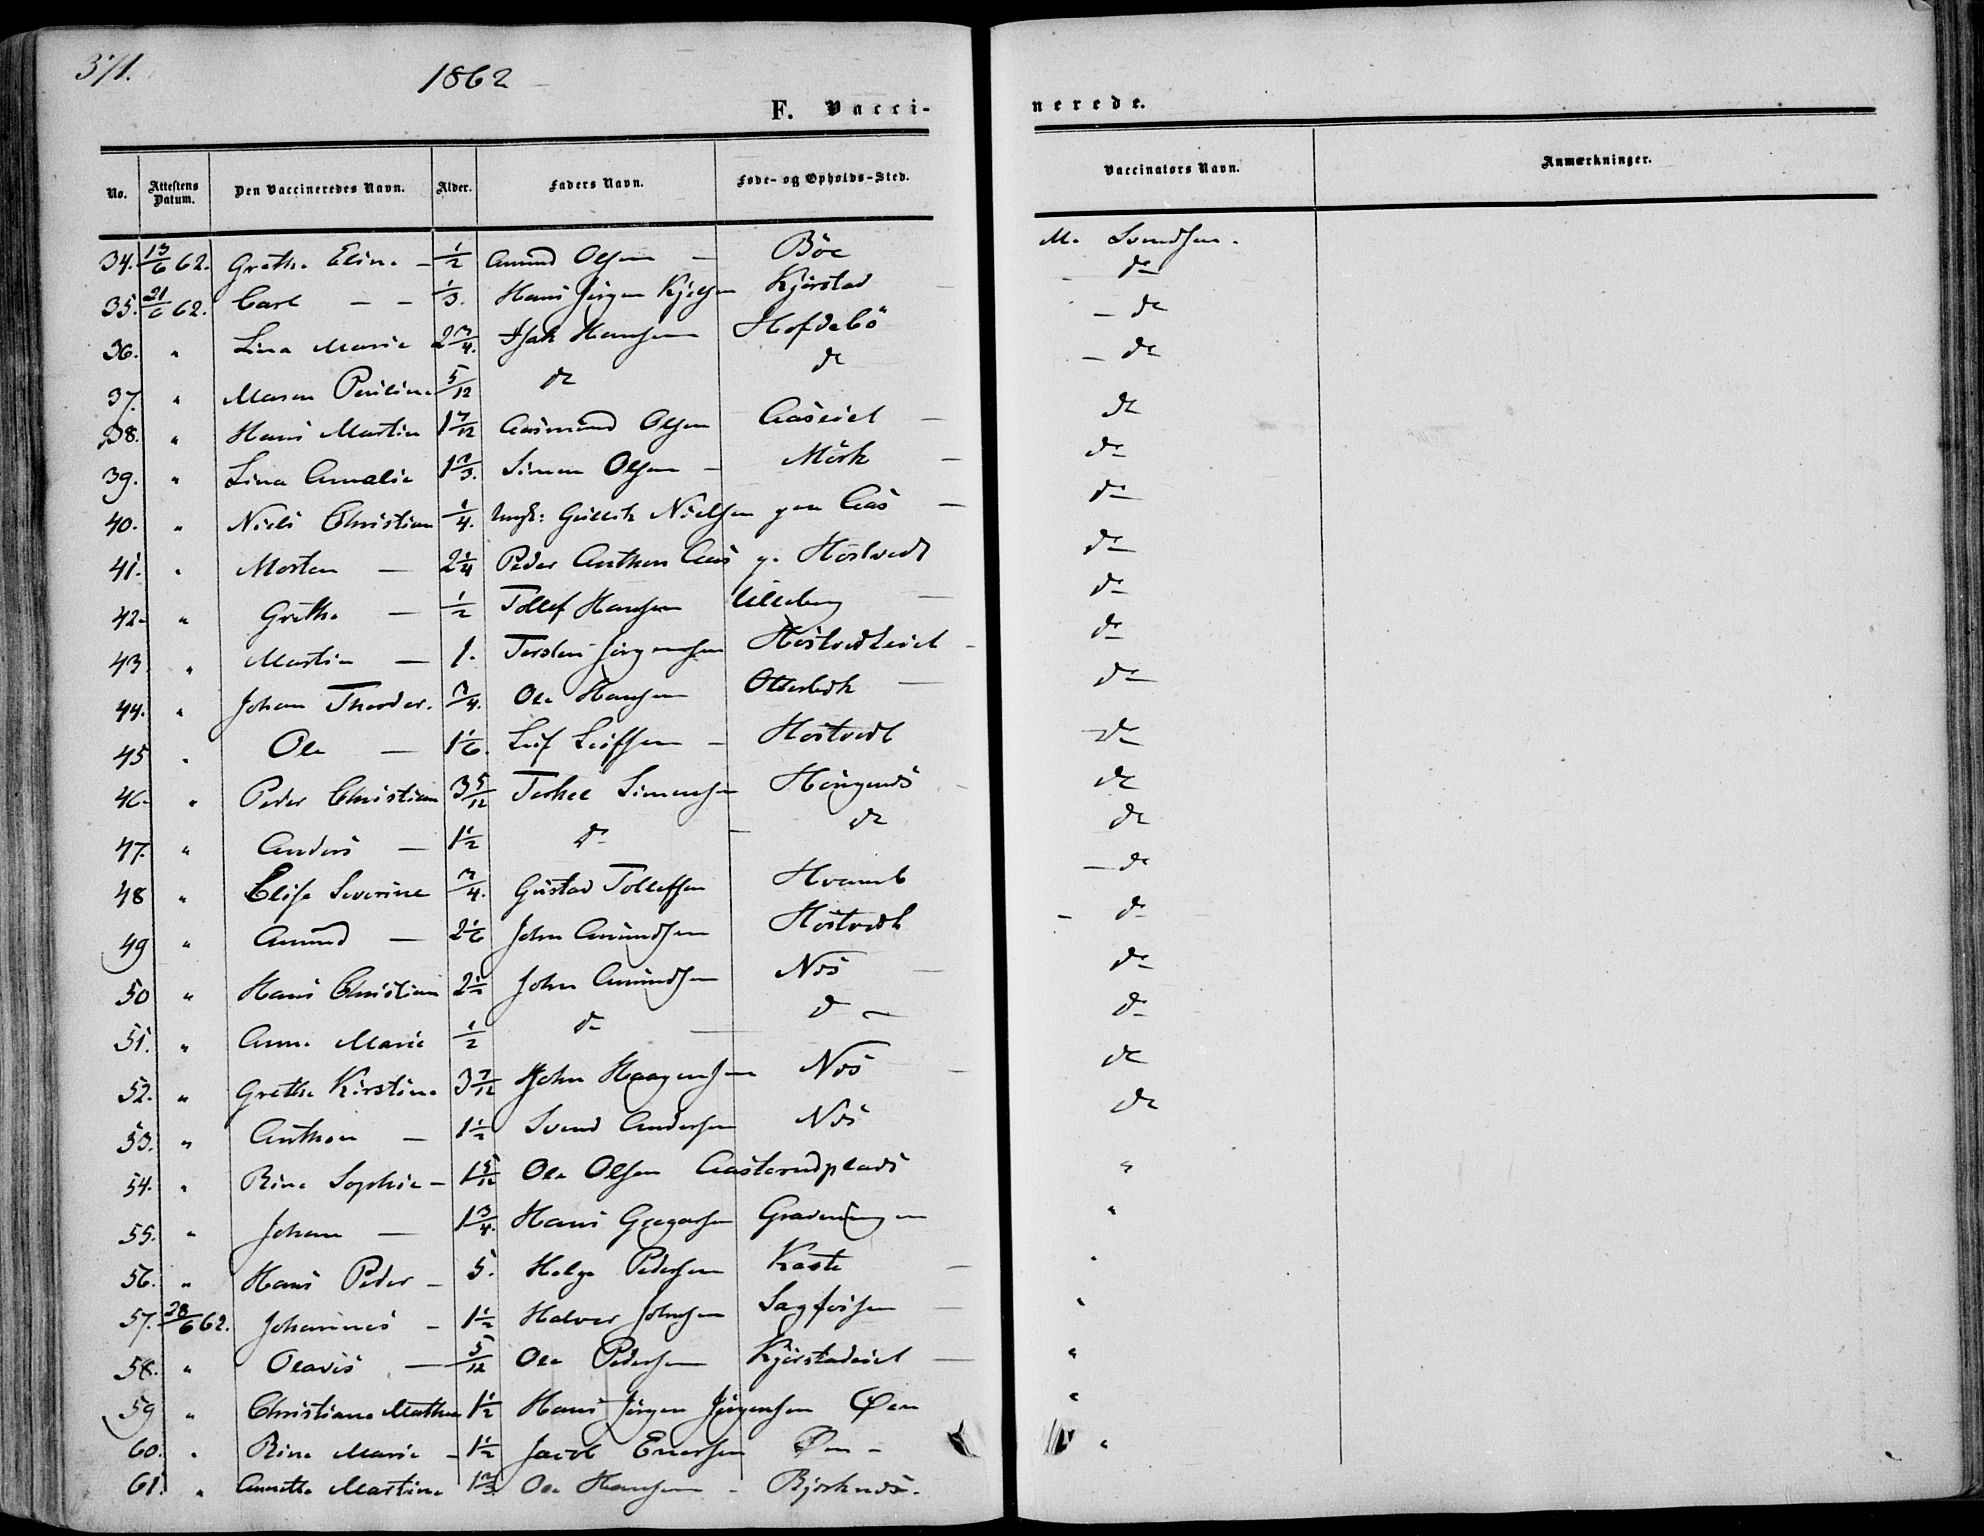 371.
1862
F. Vacci-
nerede.
No. Attestens Datum. Den Vaccineredes Navn. Alder. Faders Navn. Føde- og Opholds-Sted. Vaccinators Navn. Anmærkninger.
34. 13/6 62. Grethe Eline - 1/2 Amund Olsen - Böe M. Svendsen.
35. 21/6 62. Carl - - 1/3. Hans Jörgen Kjelsen Kjörstad do
36. " Lina Marie 2 3/4. Isak Hansen Hofdebö - do
37. " Maren Pauline 5/12 do do - do
38. " Hans Martin 1 7/12 Aasmund Olsen Aaseiet - do
39. " Lina Amalie 1 2/3. Simen Olsen - Mörk - do
40. " Niels Christian 1/4. Ungk: Gullik Nielsen paa Aas - do
41. " Morten - 2 1/4 Peder Anthon Aas p. Höstvedt do
42. " Grethe - 1/2 Tollef Hansen Ulleberg - do
43. " Martin - 1. Torsten Jörgensen Höstvedteiet - do
44. " Johan Theodor. 3/4. Ole Hansen Otterbek - do
45 " Ole - 1 1/6. Leif Leifsen - Höstvedt do
46. " Peder Christian 3 5/12 Torkel Simensen do
47. " Anders - 1 1/2 do - do do
48 " Elise Severine 3/4. Gustav Tollefsen Hvamb - do
49 " Amund - 2 1/6 John Amundsen Höstvedt - do
50 " Hans Christian 2 1/2 John Amundsen Näs - do
51. " Anne Marie 1/2 do do - do
52. " Grethe Kirstine 3 7/12 John Haagensen Näs - do
53. " Anthon - 1 1/2 Svend Andersen Näs do
54. " Rine Sophie - 1 5/12 Ole Olsen Aasterudplads "
55. " Johan - 1 3/4. Hans Gregersen Graveningen "
56. " Hans Peder - 5. Helge Pedersen Kaste - "
57. 28/6 62. Johannes - 1 1/2 Halvor Johnsen Sagfossen - "
58. " Olavis - 5/12 Ole Pedersen Kjörstadeiet - "
59 " Christiane Mathea 1 1/2 Hans Jörgen Jörgensen Øen "
60. " Rine Marie - 1 1/2 Jacob Enersen Øen - "
61. " Annette Martine 1 2/3. Ole Hansen - Björknäs.